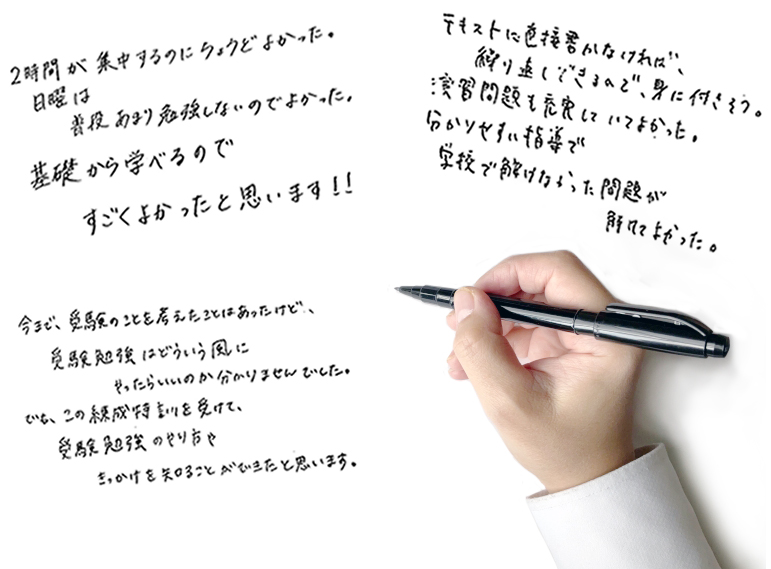 2時間が集中するのにちょうどよかった。
日曜は
普段あまり勉強しないのでよかった。
基礎から学べるので
すごくよかったと思います!!
テキストに直接書かなければ、
繰り返しできるので、身に付きそう。
演習問題も充実していてよかった。
分かりやすい指導で
学校で解けなかった問題が
解けてよかった。
今まで、受験のことを考えたことはあったけど、
受験勉強はどういう風に
やったらいいのか分かりませんでした。
でも、この練成特訓を受けて、
受験勉強のやり方や
きっかけを知ることができたと思います。